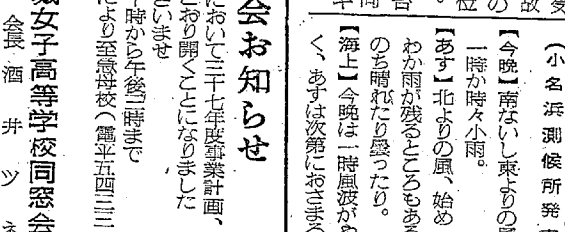 (小名浜測候所発
【今晩】南ないし東よりの風
一時か時々小雨。
【あす】北よりの風、始め
わか雨が残るところもある
のち晴れたり曇ったり。
【海上】今晩は一時風波がや
く、あすは次第におさまる
会お知らせ
において三十七年度事業計画、
とおり開くことになりました
いませ
時から午後二時まで
により至急母校(電平五四三二
女子高等学校同窓会
会長 酒井ツネ